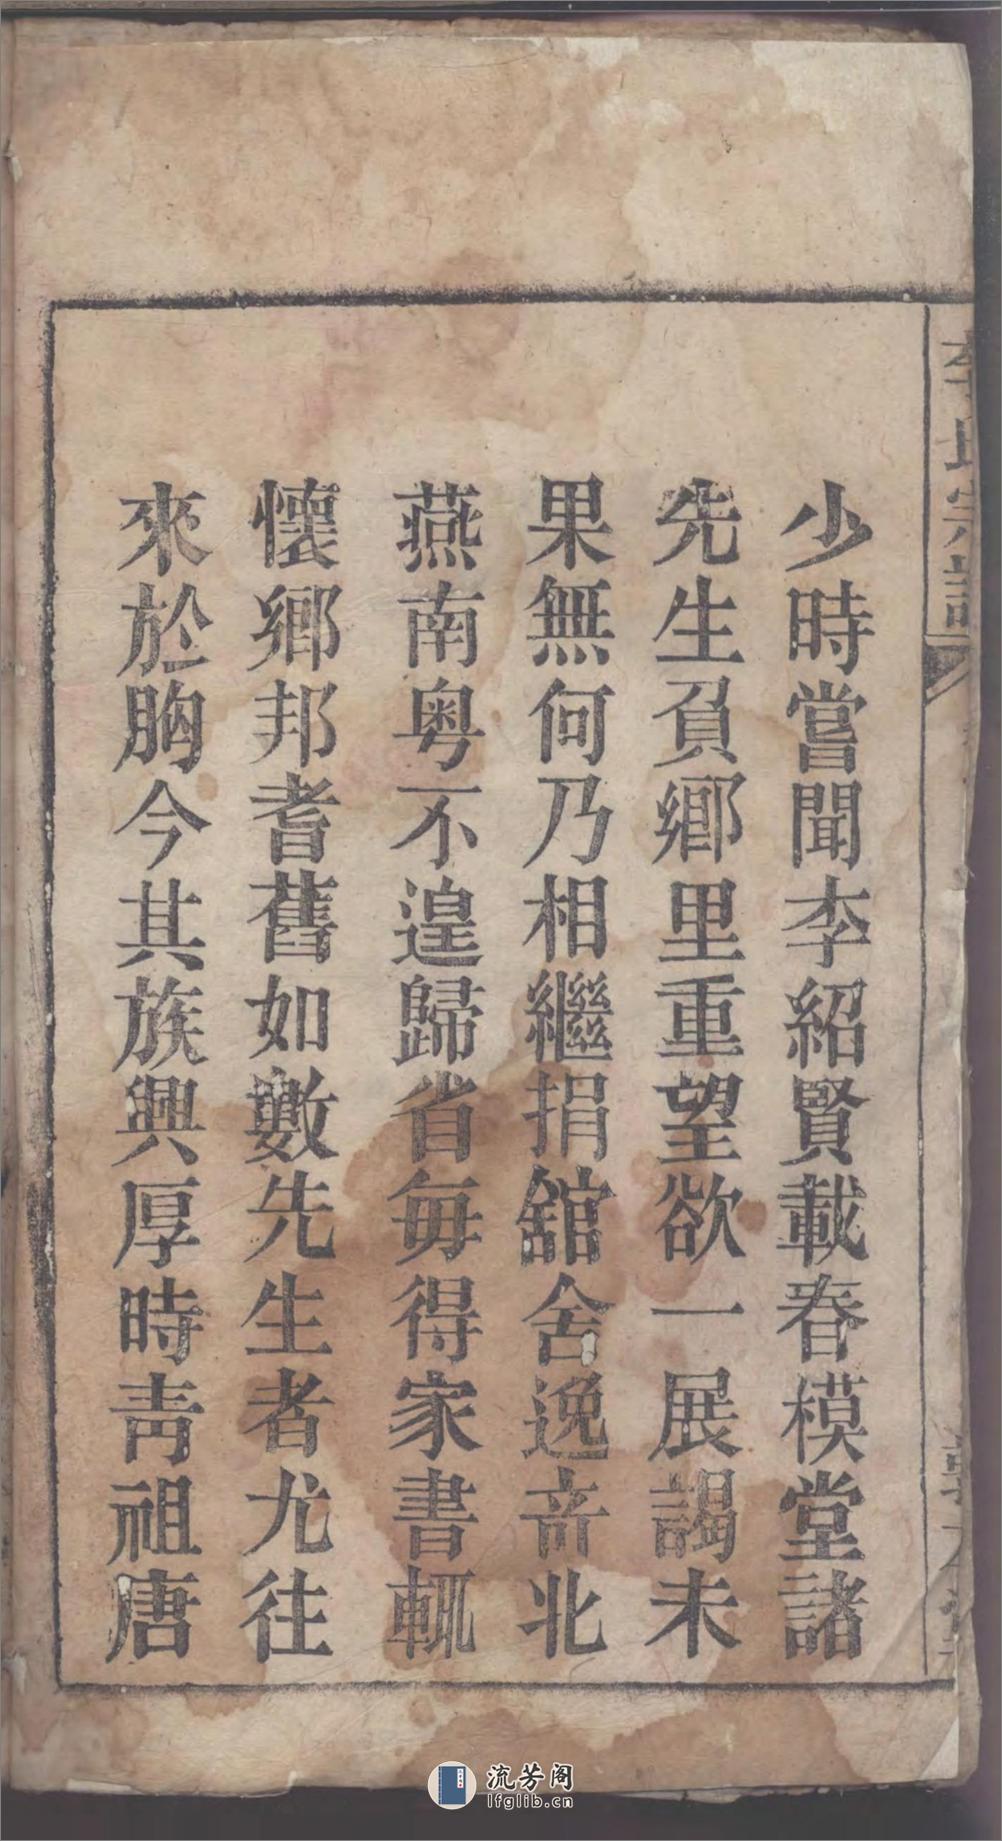 少時嘗聞李紹賢載春模堂諸
先生負鄉里重望欲一展謁未
果無何乃相繼捐舘舍逸斋北
燕南粵不遑歸省每得家書輒
懷鄉邦耆舊如數先生者尤往
來於胸今其族興厚時青祖唐
李氏宗譜
流芳阁
lfglib.cn